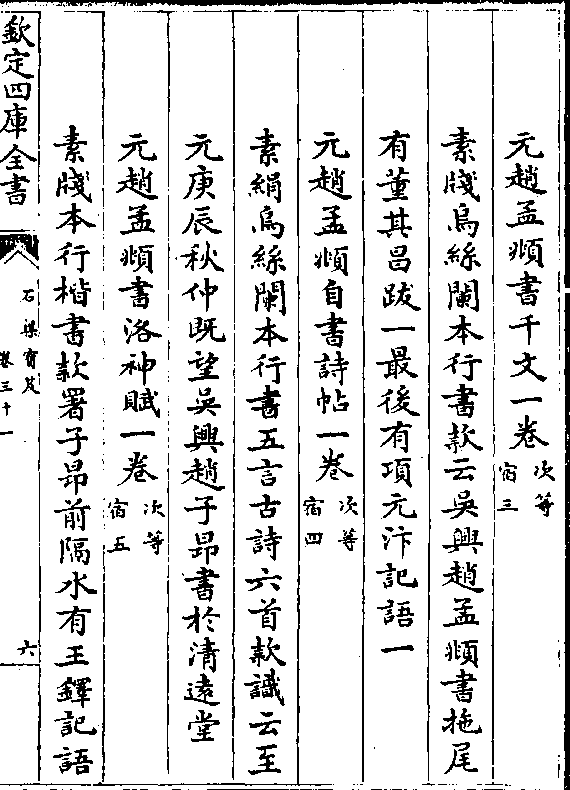 元趙孟頫書千文一卷次等宿三
素牋烏絲闌本行書款云吳興趙孟頫書拖尾
有董其昌跋一最後有項元汴記語一
元趙孟頫自書詩帖一卷次等宿四
素絹烏絲闌本行書五言古詩六首款識云至
元庚辰秋仲既望吳興趙子昂書於清遠堂
元趙孟頫書洛神賦一卷次等宿五
素牋本行楷書款署子昂前隔水有王鐸記語
欽定四庫全書
石渠寶笈
卷三十一
六